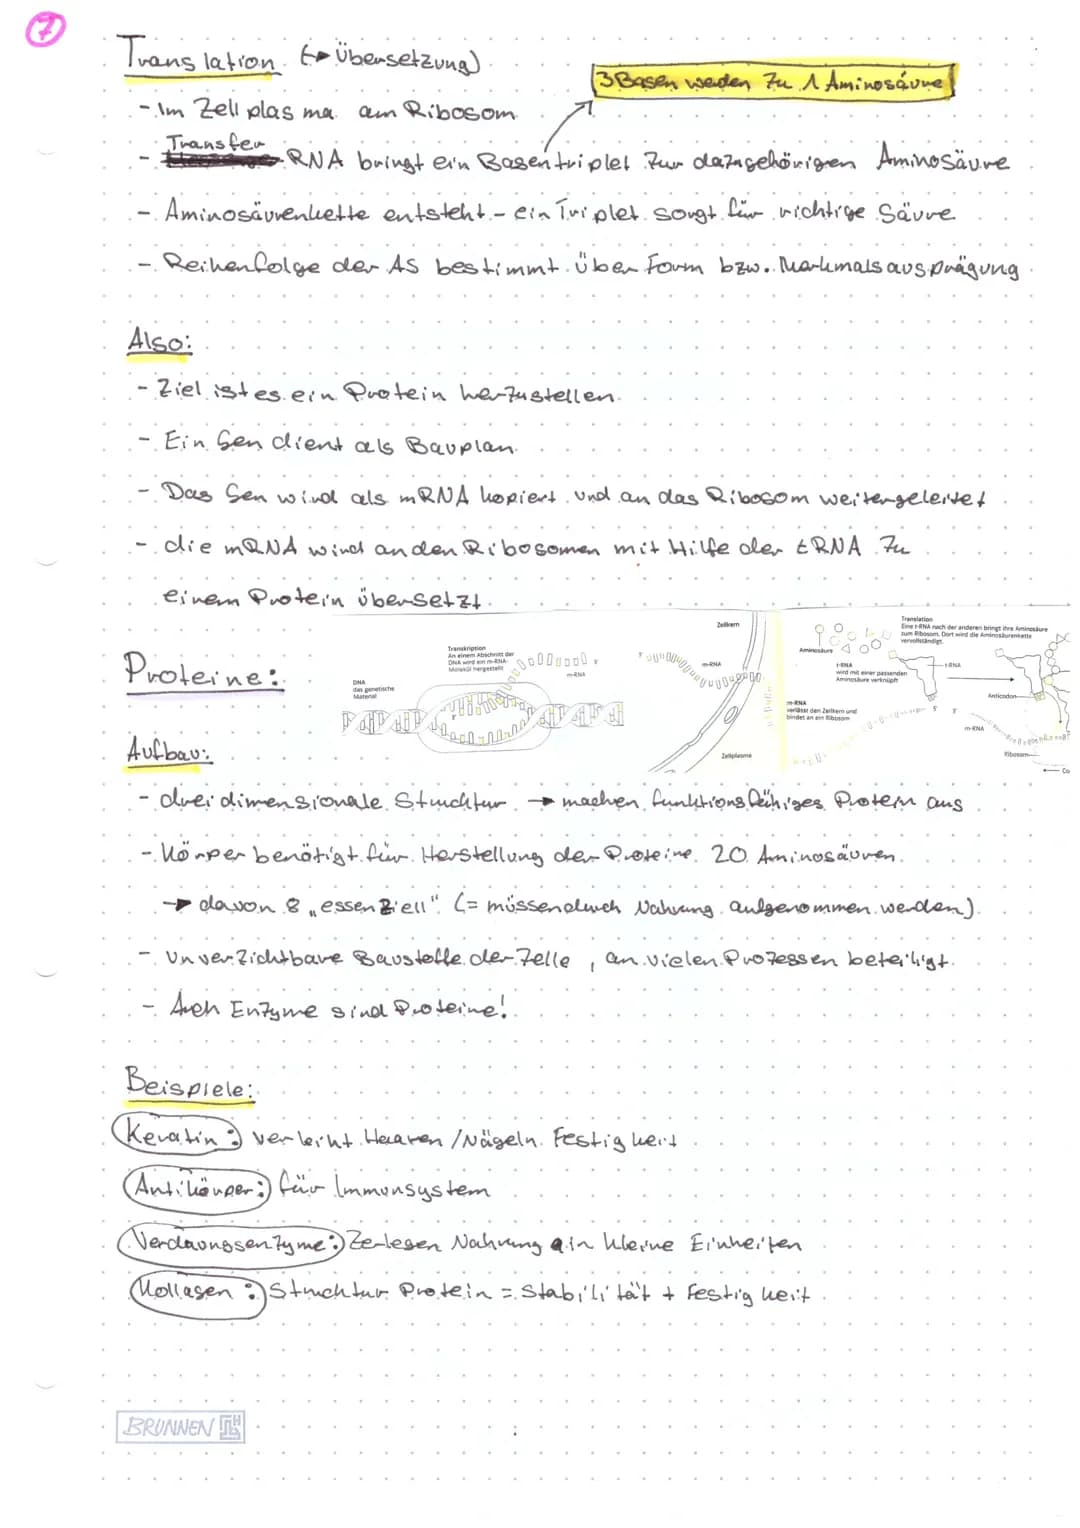 7
Translation (→ Übersetzung)
3 Basen werden zu 1 Aminosäure
- Im Zellplasma am Ribosom
Transfer
- RNA bringt ein Basentriplet zur dazugehörigen Aminosäure
- Aminosäurenkette entsteht - ein Triplet sorgt für richtige Säure
- Reihenfolge der AS bestimmt über Form bzw. Merkmalsausprägung
Also:
- Ziel ist es ein Protein herzustellen
- Ein Gen dient als Bauplan
- Das Gen wird als mRNA kopiert und an das Ribosom weitergeleitet
- die mRNA wird an den Ribosomen mit Hilfe der tRNA zu
einem Protein übersetzt.
Proteine:
Transkription
An einem Abschnitt der
DNA wird ein m-RNA-
Molekül hergestellt
m-RNA
DNA
das genetische
Material
Zellkern
m-RNA
Zellplasma
Translation
Eine t-RNA nach der anderen bringt ihre Aminosäure
zum Ribosom. Dort wird die Aminosäurenkette
vervollständigt.
Aminosäure
t-RNA
wird mit einer passenden
Aminosäure verknüpft
t-RNA
Anticodon
m-RNA
verlässt den Zellkern und
bindet an ein Ribosom
m-RNA
Ribosom
Co
Aufbau:
- dreidimensionale Struchtur → machen funktionsfähiges Protein aus
- Körper benötigt für Herstellung der Proteine 20 Aminosäuren
→ davon 8 „essenziell" (= müssen durch Nahrung aufgenommen werden)
- Unverzichtbare Baustoffe der Zelle, an vielen Prozessen beteiligt
- Auch Enzyme sind Proteine!
Beispiele:
Keratin: verleiht Haaren / Nägeln Festigkeit
Antikörper: für Immunsystem
Verdauungsenzyme: Zerlegen Nahrung in kleine Einheiten
Kollagen: Struchtur Protein = Stabilität + Festigkeit
BRUNNEN